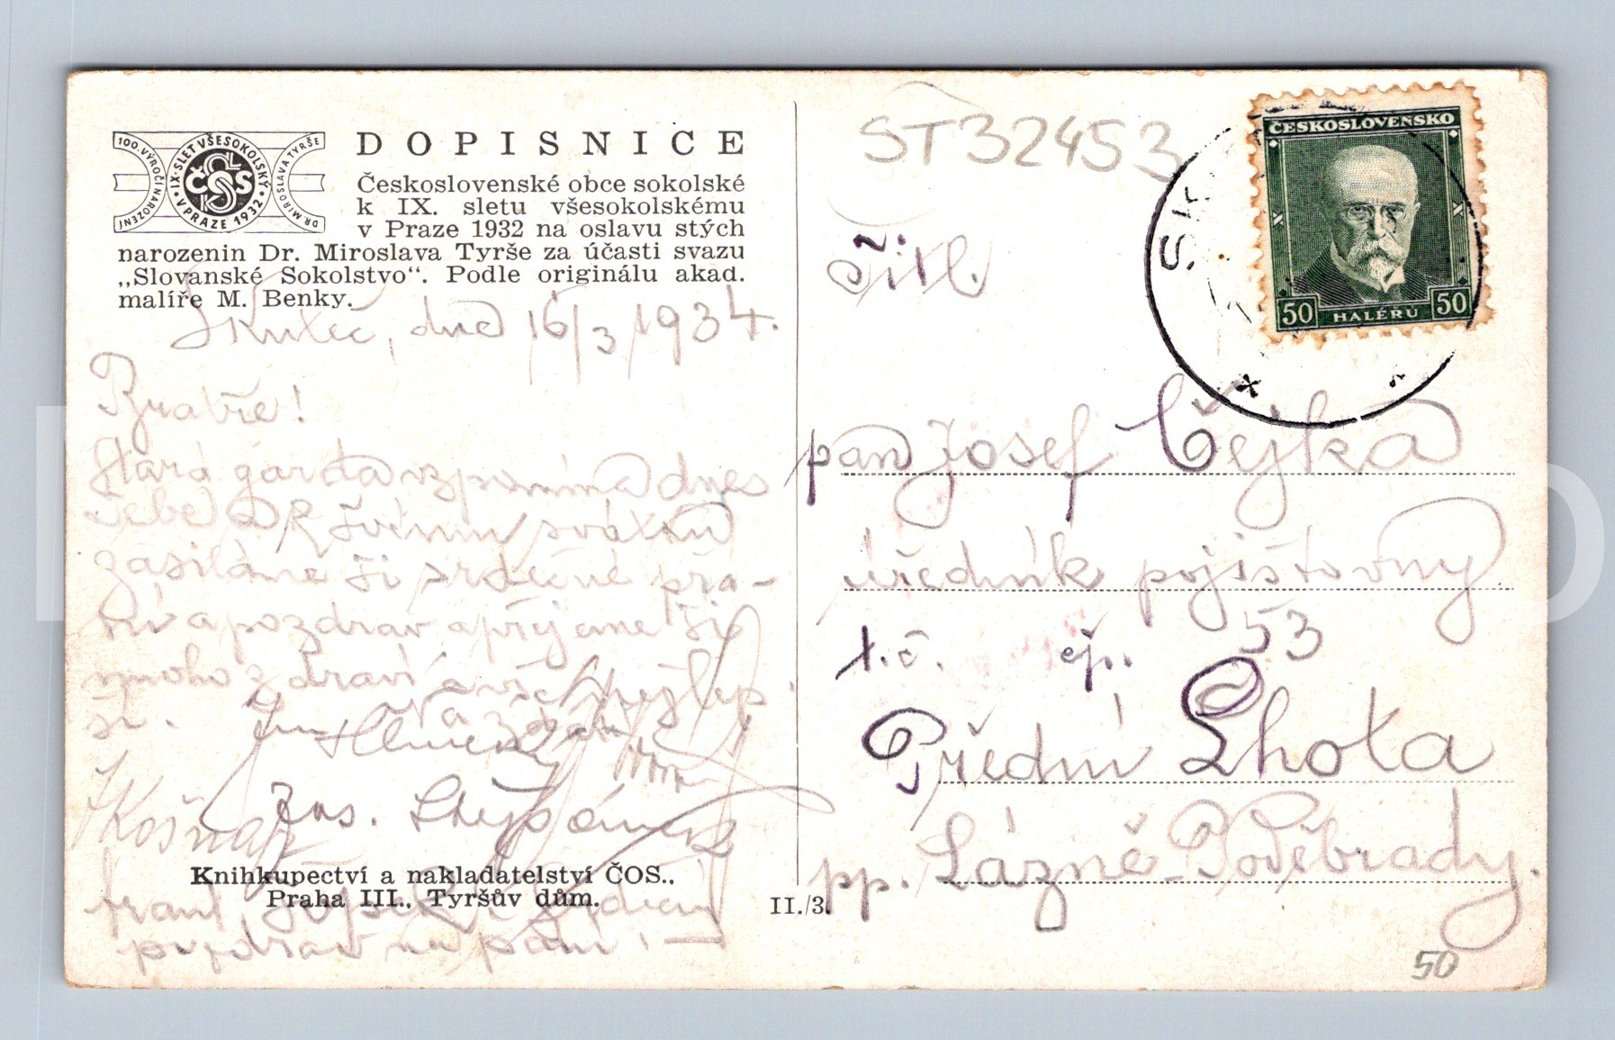 100. VÝROČÍ NAROZENÍ
IX. SLET VŠESOKOLSKÝ
V PRAZE 1932
ČOS
DR MIROSLAVA TYRŠE
DOPISNICE
Československé obce sokolské
k IX. sletu všesokolskému
v Praze 1932 na oslavu stých
narozenin Dr. Miroslava Tyrše za účasti svazu
„Slovanské Sokolstvo“. Podle originálu akad.
malíře M. Benky.
Skuteč, dne 16/3 1934.
Bratře!
Stará garda vzpomíná dnes
Tebe a K Tvému svátku
zasíláme Ti srdečné přá-
ní a pozdrav a přejeme Ti
mnoho zdraví a vše nejlep
ší.
Na zdar!
Jos. Štěpánek
Košnar
Knihkupectví a nakladatelství ČOS.,
Praha III., Tyršův dům.
pozdrav na paní!
II./3.
ST32453
ČESKOSLOVENSKO
50 HALÉŘŮ 50
SK
Titl.
pan Josef Čejka
úředník pojišťovny
t.č. čp. 53
Přední Lhota
pp. Lázně-Poděbrady.
50